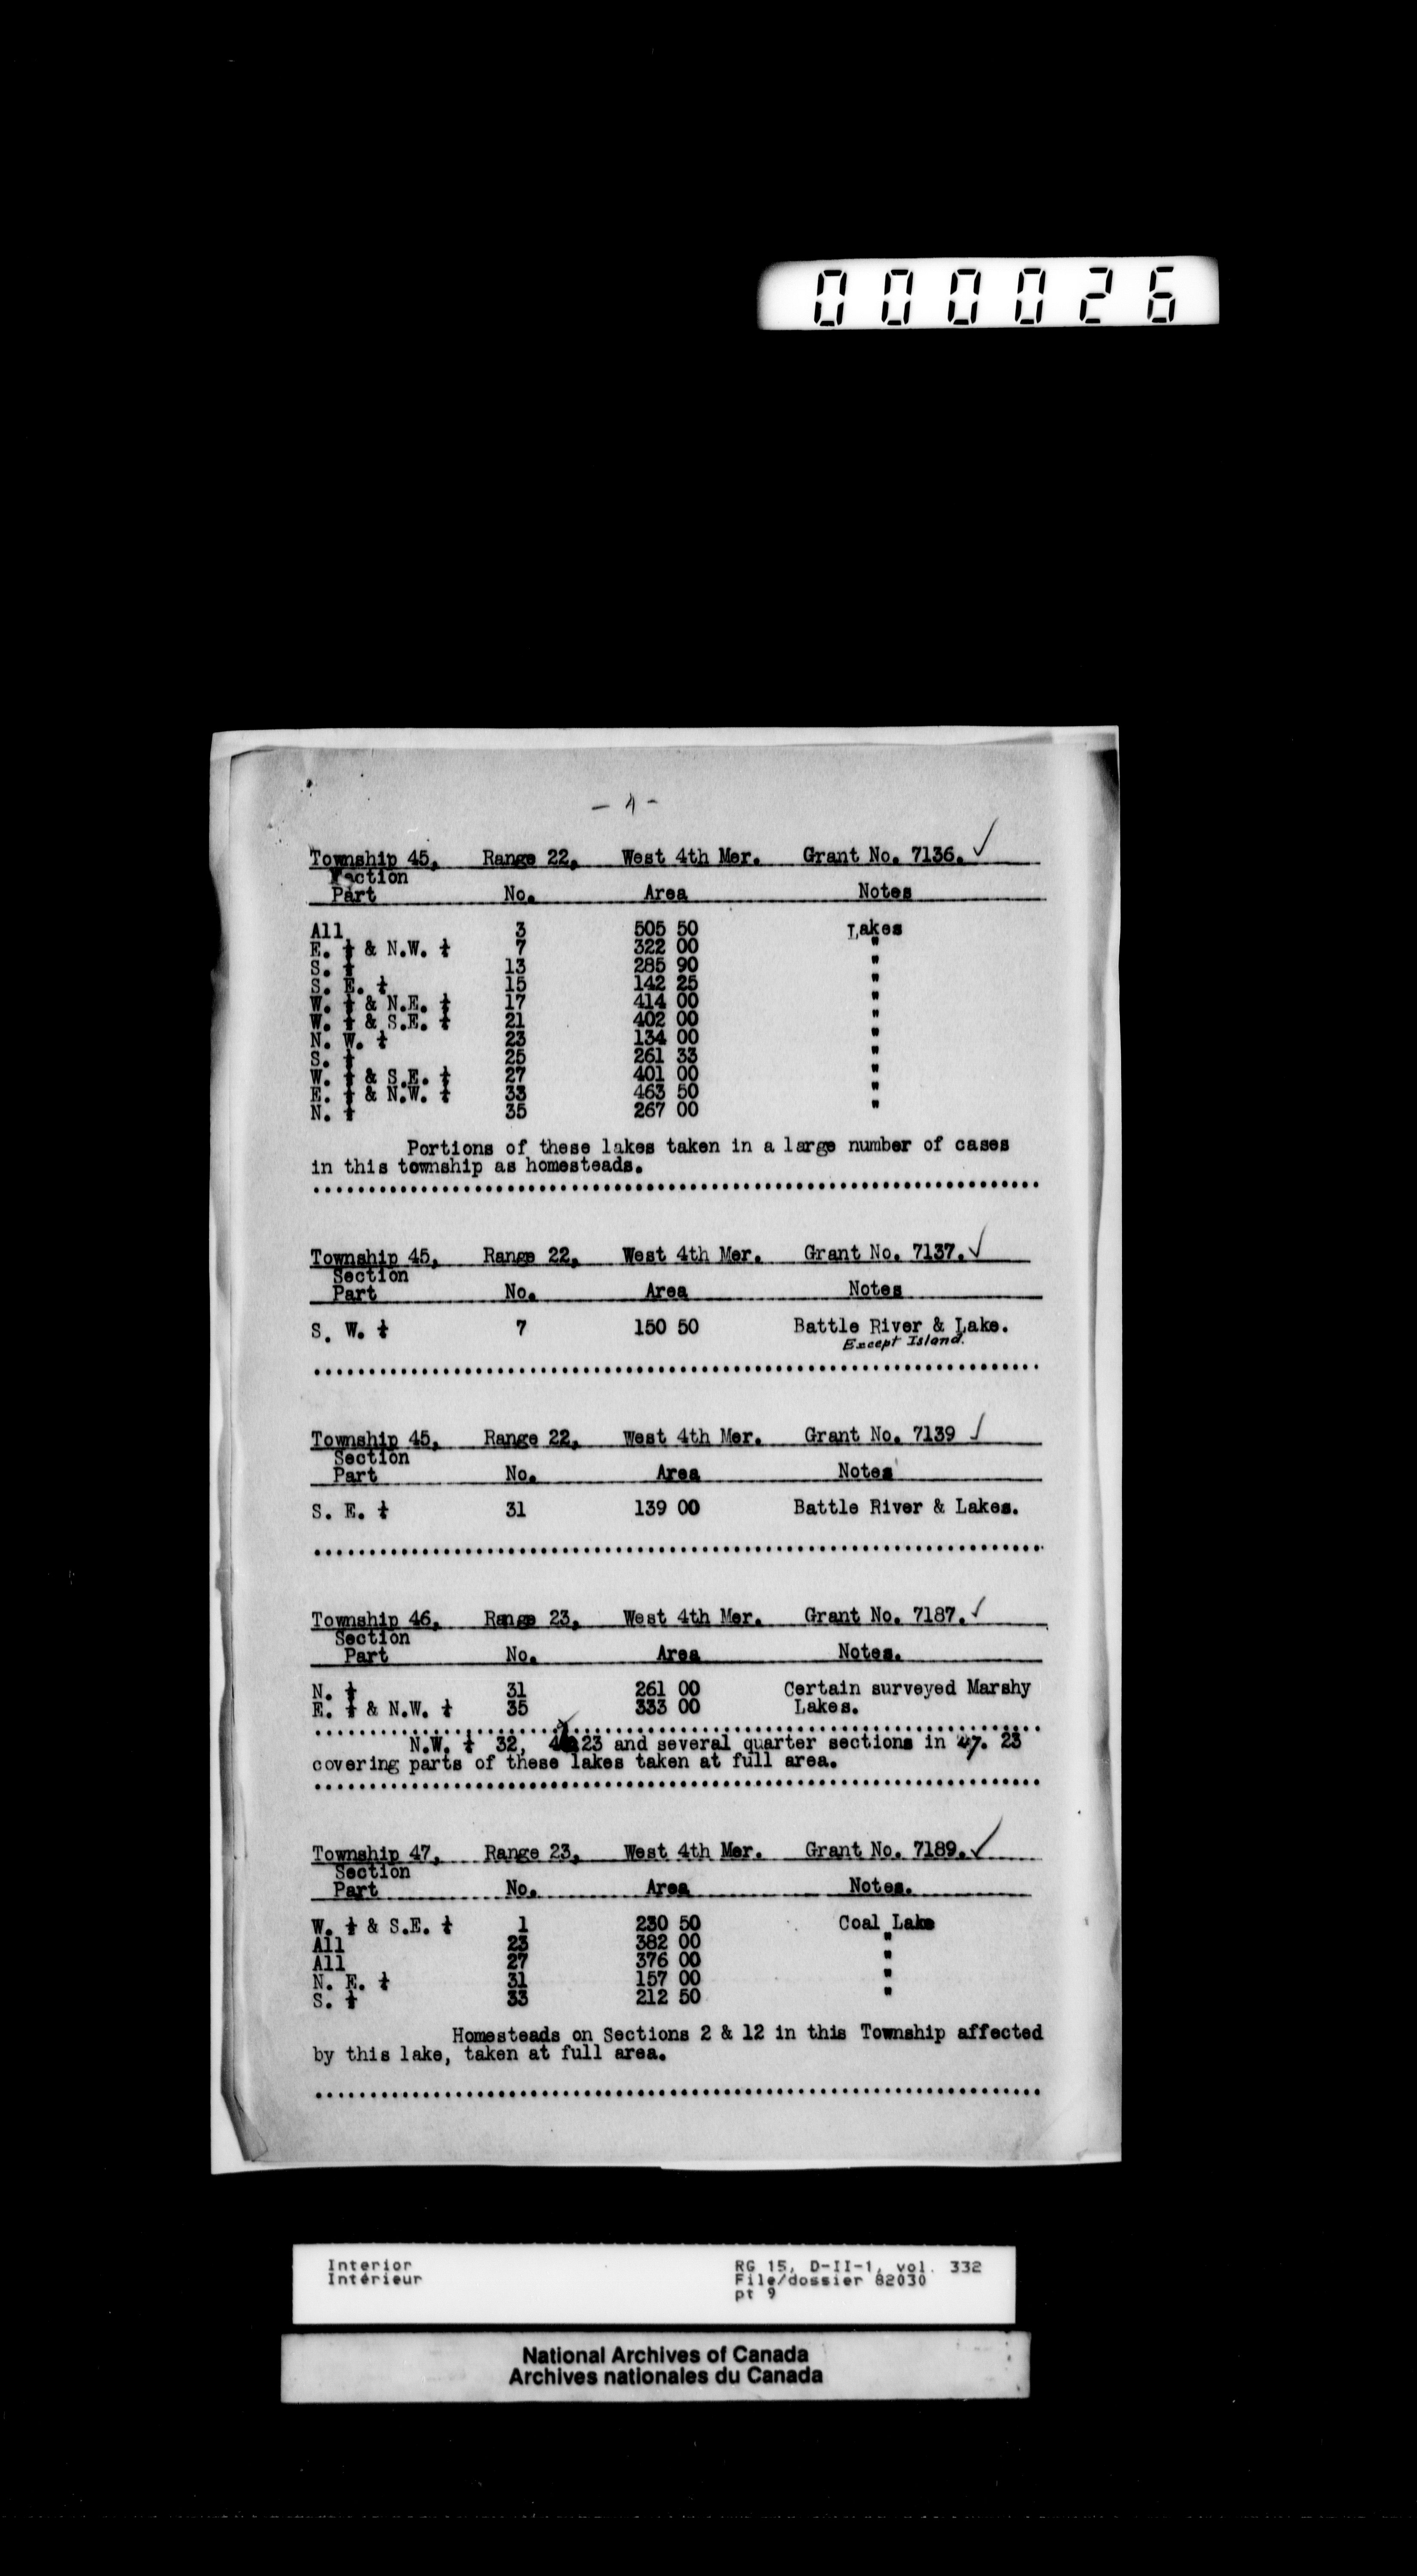 000026
- 4 -
Township 45, Range 22, West 4th Mer. Grant No. 7136. ✓
Section
Part No. Area Notes
All 3 505 50 Lakes
E. ½ & N.W. ¼ 7 322 00 "
S. ½ 13 285 90 "
S. E. ¼ 15 142 25 "
W. ½ & N.E. ¼ 17 414 00 "
W. ½ & S.E. ¼ 21 402 00 "
N. W. ¼ 23 134 00 "
S. ½ 25 261 33 "
W. ½ & S.E. ¼ 27 401 00 "
E. ½ & N.W. ¼ 33 463 50 "
N. ½ 35 267 00 "
Portions of these lakes taken in a large number of cases
in this township as homesteads.
Township 45, Range 22, West 4th Mer. Grant No. 7137. ✓
Section
Part No. Area Notes
S. W. ¼ 7 150 50 Battle River & Lake.
Except Island.
Township 45, Range 22, West 4th Mer. Grant No. 7139 ✓
Section
Part No. Area Notes
S. E. ¼ 31 139 00 Battle River & Lakes.
Township 46, Range 23, West 4th Mer. Grant No. 7187. ✓
Section
Part No. Area Notes.
N. ½ 31 261 00 Certain surveyed Marshy
E. ½ & N.W. ¼ 35 333 00 Lakes.
N.W. ¼ 32, 23 and several quarter sections in 47. 23
covering parts of these lakes taken at full area.
Township 47, Range 23, West 4th Mer. Grant No. 7189. ✓
Section
Part No. Area Notes.
W. ½ & S.E. ¼ 1 230 50 Coal Lake
All 23 382 00 "
All 27 376 00 "
N. E. ¼ 31 157 00 "
S. ½ 33 212 50 "
Homesteads on Sections 2 & 12 in this Township affected
by this lake, taken at full area.
Interior RG 15, D-II-1, vol. 332
Intérieur File/dossier 82030
pt 9
National Archives of Canada
Archives nationales du Canada